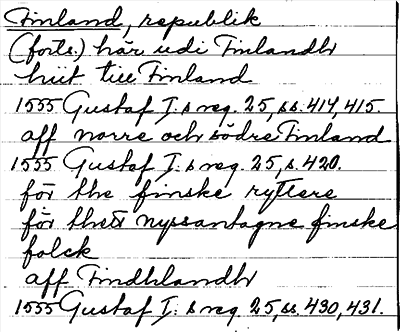 Finland, republik
(forts.) här udi Finlandh
hiit till Finland
1555 Gustaf I:s reg. 25, ss. 414, 415
aff norre och södre Finland
1555 Gustaf I:s reg. 25, s. 420.
för the finske ryttere
för thett nyssantagne finske
folck
aff Findhlandh
1555 Gustaf I:s reg. 25, ss. 430, 431.